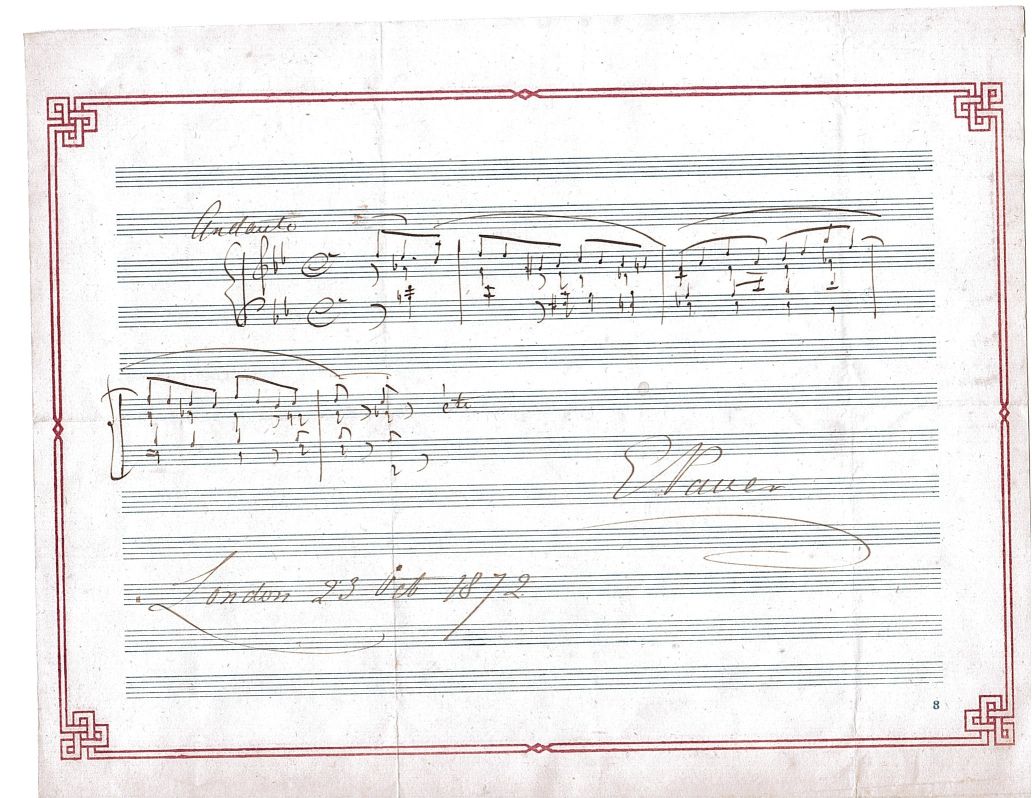 Andante
etc
E Pauer
London 23 Oct 1872
8